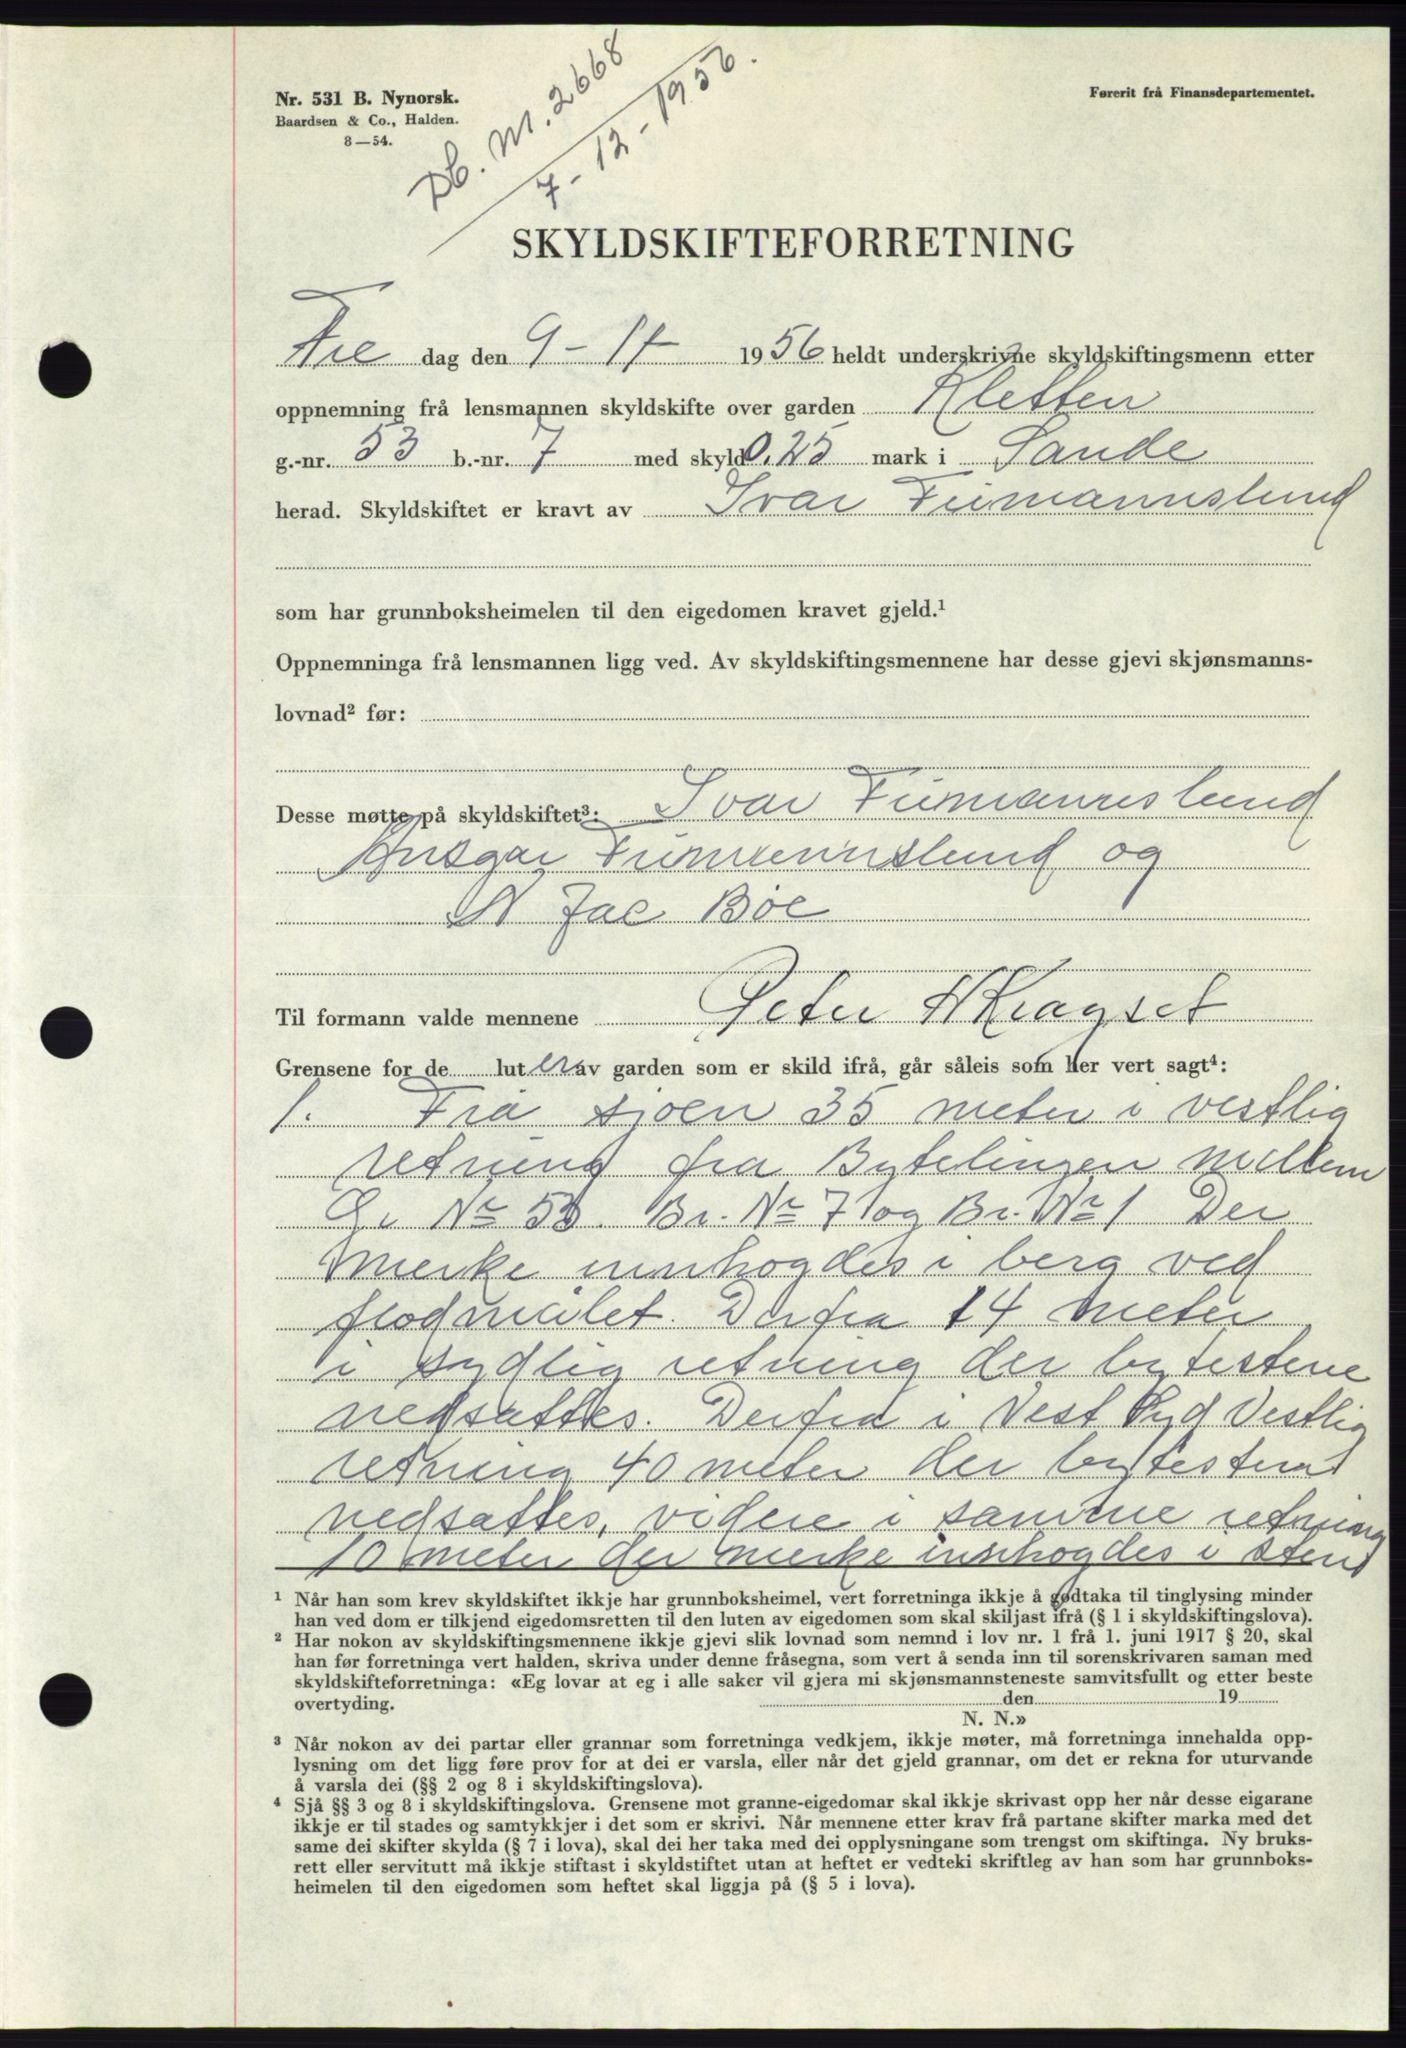 Nr. 531 B. Nynorsk.
Baardsen & Co., Halden.
8—54.
Db. nr. 2668
7-12-1956.
Førerit frå Finansdepartementet.
SKYLDSKIFTEFORRETNING
Fre dag den 9-11 1956 heldt underskrivne skyldskiftingsmenn etter
oppnemning frå lensmannen skyldskifte over garden Kletten
g.-nr. 53 b.-nr. 7 med skyld 0.25 mark i Sande
herad. Skyldskiftet er kravt av Ivar Furmannslund
som har grunnboksheimelen til den eigedomen kravet gjeld.¹
Oppnemninga frå lensmannen ligg ved. Av skyldskiftingsmennene har desse gjevi skjønsmanns-
lovnad² før:
Desse møtte på skyldskiftet³: Ivar Furmannslund
Ansgar Furmannslund og
N Jac Bøe
Til formann valde mennene Peter H Kragset
Grensene for de luter av garden som er skild ifrå, går såleis som her vert sagt⁴:
1. Fra sjøen 35 meter i vestlig
retning fra Bytelingen mellem
Gr. Nr 53. Br. Nr 7 og Br. Nr 1 Der
merke innhogdes i berg ved
flodmålet. Derfra 14 meter
i sydlig retning der bytestene
nedsattes. Derfra i Vest Syd Vestlig
retning 40 meter der bytestene
nedsattes, videre i samme retning
10 meter der merke innhogdes i sten
¹ Når han som krev skyldskiftet ikkje har grunnboksheimel, vert forretninga ikkje å godtaka til tinglysing minder
han ved dom er tilkjend eigedomsretten til den luten av eigedomen som skal skiljast ifrå (§ 1 i skyldskiftingslova).
² Har nokon av skyldskiftingsmennene ikkje gjevi slik lovnad som nemnd i lov nr. 1 frå 1. juni 1917 § 20, skal
han før forretninga vert halden, skriva under denne fråsegna, som vert å senda inn til sorenskrivaren saman med
skyldskifteforretninga: «Eg lovar at eg i alle saker vil gjera mi skjønsmannsteneste samvitsfullt og etter beste
overtyding. den 19
N. N.»
³ Når nokon av dei partar eller grannar som forretninga vedkjem, ikkje møter, må forretninga innehalda opp-
lysning om det ligg føre prov for at dei er varsla, eller når det gjeld grannar, om det er rekna for uturvande
å varsla dei (§§ 2 og 8 i skyldskiftingslova).
⁴ Sjå §§ 3 og 8 i skyldskiftingslova. Grensene mot granne-eigedomar skal ikkje skrivast opp her når desse eigarane
ikkje er til stades og samtykkjer i det som er skrivi. Når mennene etter krav frå partane skifter marka med det
same dei skifter skylda (§ 7 i lova), skal dei her taka med dei opplysningane som trengst om skiftinga. Ny bruks-
rett eller servitutt må ikkje stiftast i skyldstiftet utan at heftet er vedteki skriftleg av han som har grunnboks-
heimelen til den eigedomen som heftet skal liggja på (§ 5 i lova).